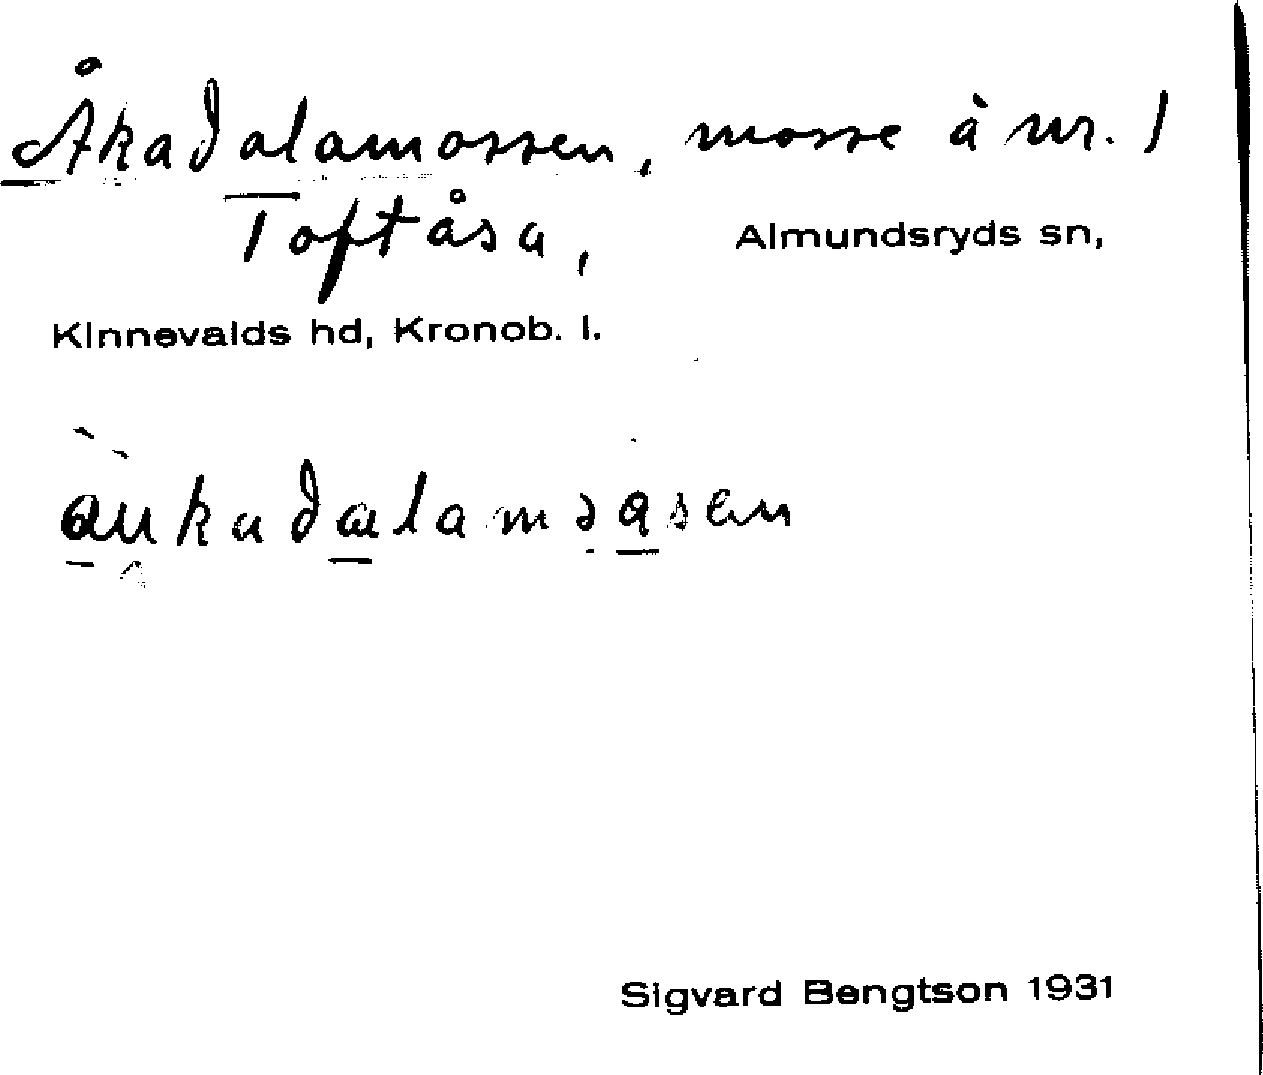 Åkadalamossen, mosse à nr. 1
Toftåsa, Almundsryds sn,
Kinnevalds hd, Kronob. l.
Sigvard Bengtson 1931